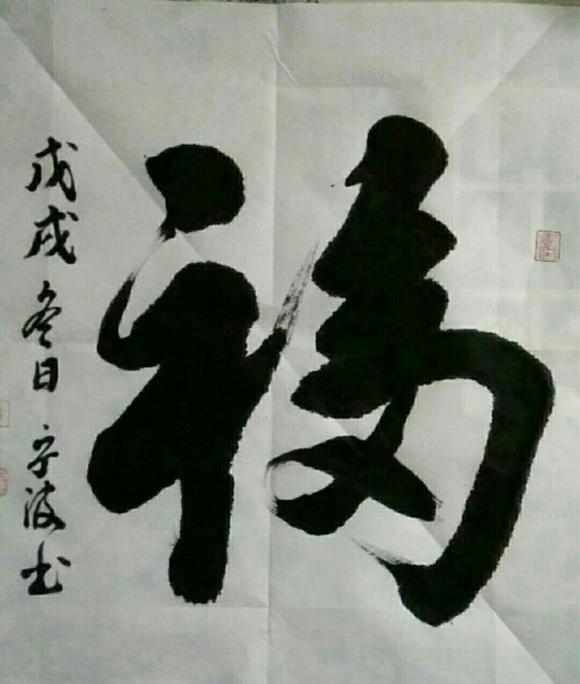 福
戊戌冬日波书